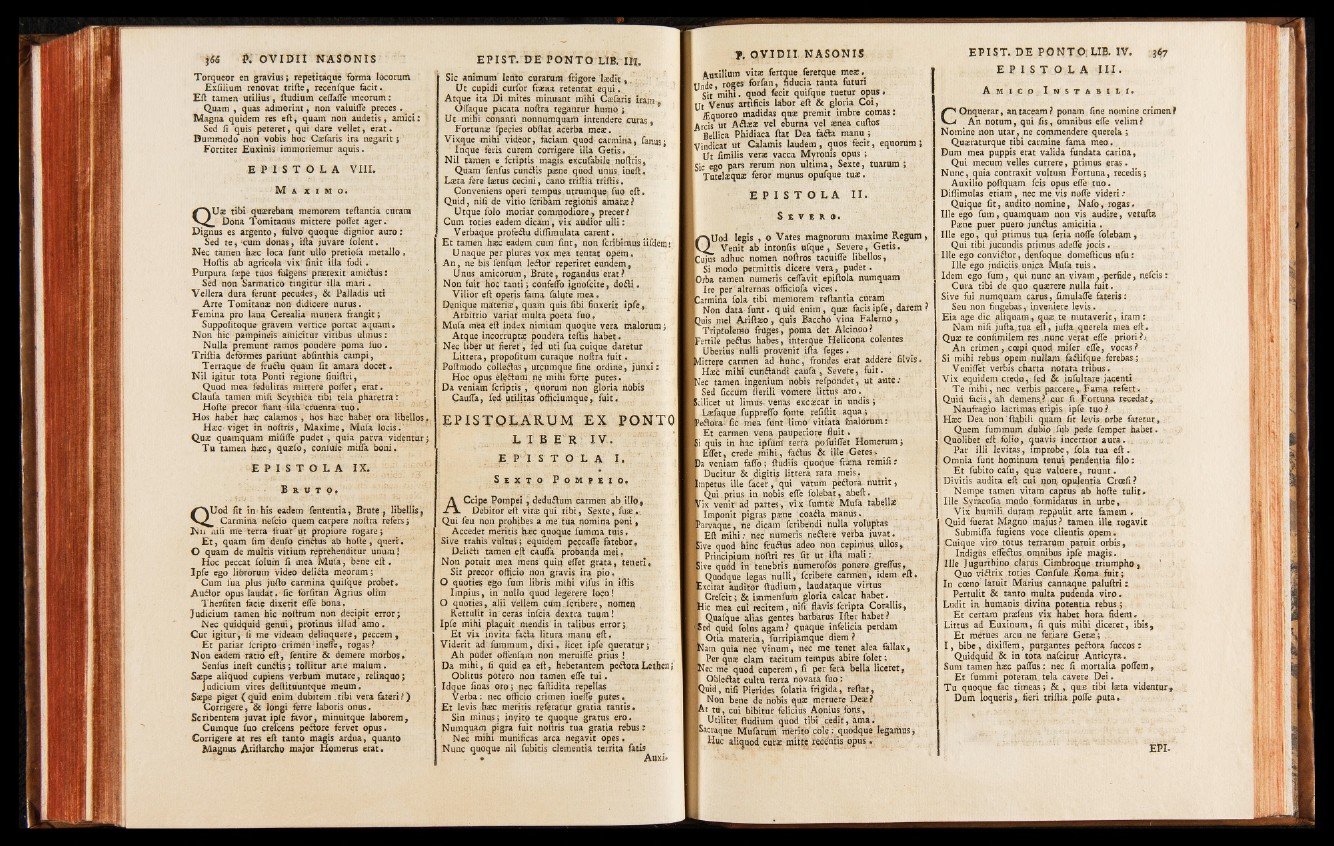 366 P. OVIDII NASONIS
Torqueor en gravius; repetitaque forma locorum
Exsilium renovat triste, recensque facit.
Est tamen utilius, studium cessasse meorum:
Quam, quas admorint, non valuisse preces.
Magna quidem res est, quam non audetis, amici:
Sed si quis peteret, qui dare vellet, erat.
Dummodo non vobis hoc Cæsaris ira negarit;
Fortiter Euxinis immoriemur aquis.
EPISTOLA VIII.
MAXIMO.
QUæ tibi quærebam memorem testantia curam
Dona Tomitanus mittere posset ager.
Dignus es argento, fulvo quoque dignior auro:
Sed te, cum donas, ista juvare solent.
Nec tamen hæc loca sunt ullo pretiosa metallo.
Hostis ab agricola vix sinit illa fodi.
Purpura sæpe tuos fulgens prætexit amictus:
Sed non Sarmatico tingitur illa mari.
Vellera dura ferunt pecudes, & Palladis uti
Arte Tomitanæ non didicere nurus.
Femina pro lana Cerealia munera frangit;
Suppositoque gravem vertice portat aquam.
Non hic pampineis amicitur vitibus ulmus:
Nulla premunt ramos pondere poma suo.
Tristia deformes pariunt absinthia campi,
Terraque de fructu quam sit amara docet.
Nil igitur tota Ponti regione sinistri,
Quod mea sedulitas mittere posset, erat.
Clausa tamen misi Scythica tibi tela pharetra:
Hoste precor fiant illa cruenta tuo.
Hos habet hæc calamos, hos hæc habet ora libellos.
Hæc viget in nostris, Maxime, Musa locis.
Quæ quamquam misisse pudet, quia parva videntur;
Tu tamen hæc, quæso, consule missa boni.
EPISTOLA IX.
BRUTO.
QUod sit in his eadem sententia, Brute, libellis,
Carmina nescio quem carpere nostra refers;
Nil nisi me terra fruar ut propiore rogare;
Et, quam sim denso cinctus ab hoste, queri.
O quam de multis vitium reprehenditur unum!
Hoc peccat solum si mea Musa, bene est.
Ipse ego librorum video delicta meorum;
Cum sua plus justo carmina quisque probet.
Auctor opus laudat. sic forsitan Agrius olim
Thersiten facie dixerit esse bona.
Judicium tamen hic nostrum non decipit error;
Nec quidquid genui, protinus illud amo.
Cur igitur, si me videam delinquere, peccem,
Et patiar scripto crimen inesse, rogas?
Non eadem ratio est, sentire & demere morbos.
Sensus inest cunctis; tollitur arte malum.
Sæpe aliquod cupiens verbum mutare, relinquo;
Judicium vires destituuntque meum.
Sæpe piget (quid enim dubitem tibi vera fateri?)
Corrigere, & longi ferre laboris onus.
Scribentem juvat ipse favor, minuitque laborem,
Cumque suo crescens pectore fervet opus.
Corrigere at res est tanto magis ardua, quanto
Magnus Aristarcho major Homerus erat.
EPIST. DE PONTO LIB. III.
Sic animum lento curarum frigore lædit,
Ut cupidi cursor fræna retentat equi.
Atque ita Di mites minuant mihi Cæsaris iram,
Ossaque pacata nostra tegantur humo;
Ut mihi conanti nonnumquam intendere curas,
Fortunæ species obstat acerba meæ.
Vixque mihi videor, faciam quod carmina, sanus;
Inque feris curem corrigere illa Getis.
Nil tamen e scriptis magis excusabile nostris,
Quam sensus cunctis pæne quod unus inest.
Læta fere lætus cecini, cano tristia tristis.
Conveniens operi tempus utrumque suo est.
Quid, nisi de vitio scribam regionis amaræ?
Utque solo moriar commodiore, precer?
Cum toties eadem dicam, vix audior ulli:
Verbaque profectu dissimulata carent.
Et tamen hæc eadem cum sint, non scribimus iisdem:
Unaque per plures vox mea tentat opem.
An, ne bis sensum lector reperiret eundem,
Unus amicorum, Brute, rogandus erat?
Non fuit hoc tanti; confesso ignoscite, docti.
Vilior est operis fama salute mea.
Denique materiæ, quam quis sibi finxerit ipse,
Arbitrio variat multa poeta suo.
Musa mea est index nimium quoque vera malorum;
Atque incorruptæ pondera testis habet.
Nec liber ut fieret, sed uti sua cuique daretur
Littera, propositum curaque nostra fuit.
Postmodo collectas, utcumque sine ordine, junxi:
Hoc opus electum ne mihi forte putes.
Da veniam scriptis, quorum non gloria nobis
Caussa, sed utilitas officiumque, fuit.
EPISTOLARUM EX PONTO
LIBER IV.
EPISTOLA I.
SEXTO POMPEIO.
ACcipe Pompei, deductum carmen ab illo,
Debitor est vitæ qui tibi, Sexte, suæ.
Qui seu non prohibes a me tua nomina poni,
Accedet meritis hæc quoque summa tuis.
Sive trahis vultus; equidem peccasse fatebor,
Delicti tamen est caussa probanda mei.
Non potuit mea mens quin esset grata, teneri.
Sit precor officio non gravis ira pio.
O quoties ego sum libris mihi visus in istis
Impius, in nullo quod legerere loco!
O quoties, alii vellem cum scribere, nomen
Rettulit in ceras inscia dextra tuum!
Ipse mihi plaçuit mendis in talibus error;
Et vix invita facta litura manu est.
Viderit ad summum, dixi, licet ipse queratur;
Ah pudet offensam non meruisse prius!
Da mihi, si quid ea est, hebetantem pectora Lethen;
Oblitus potero non tamen esse tui.
Idque sinas oro; nec fastidita repellas
Verba: nec officio crimen inesse putes.
Et levis hæc meritis referatur gratia tantis.
Sin minus; invito te quoque gratus ero.
Numquam pigra fuit nostris tua gratia rebus:
Nec mihi munificas arca negavit opes.
Nunc quoque nil subitis clementia territa fatis
Auxi-
P. OVIDII NASONIS
Auxilium vitæ fertque feretque meæ.
Unde, roges forsan, fiducia tanta futuri
Sit mihi. quod fecit quisque tuetur opus.
Ut Venus artificis labor est & gloria Coi,
Æquoreo madidas quæ premit imbre comas:
Arcis ut Actææ vel eburna vel ænea custos
Bellica Phidiaca stat Dea facta manu;
Vindicat ut Calamis laudem, quos fecit, equorum;
Ut similis veræ vacca Myronis opus;
Sic ego pars rerum non ultima, Sexte, tuarum;
Tutelæquæ feror munus opusque tuæ.
EPISTOLA II.
SEVERO.
QUod legis, o Vates magnorum maxime Regum,
Venit ab intonsis usque, Severe, Getis.
Cujus adhuc nomen nostros tacuisse libellos,
Si modo permittis dicere vera, pudet.
Orba tamen numeris cessavit epistola numquam
Ire per alternas officiosa vices.
Carmina sola tibi memorem testantia curam
Non data sunt. quid enim, quæ facis ipse, darem?
Quis mel Aristæo, quis Baccho vina Falerno,
Triptolemo fruges, poma det Alcinoo?
Fertile pectus habes, interque Helicona colentes
Uberius nulli provenit ista seges.
Mittere carmen ad hunc, frondes erat addere silvis.
Hæc mihi cunctandi causa, Severe, fuit.
Nec tamen ingenium nobis respondet, ut ante:
Sed siccum sterili vomere littus aro.
Scilicet ut limus venas excæcat in undis;
Læsaque suppresso fonte resistit aqua;
Pectora sic mea sunt limo vitiata malorum:
Et carmen vena pauperiore fluit.
Si quis in hac ipsum terra posuisset Homerum;
Esset, crede mihi, factus & ille Getes.
Da veniam fasso: studiis quoque fræna remisi:
Ducitur & digitis littera rara meis.
Impetus ille sacer, qui vatum pectora nutrit,
Qui prius in nobis esse solebat, abest.
Vix venit ad partes, vix sumtæ Musa tabellæ
Imponit pigras pæne coacta manus.
Parvaque, ne dicam scribendi nulla voluptas
Est mihi: nec numeris nectere verba juvat.
Sive quod hinc fructus adeo non cepimus ullos,
Principium nostri res sit ut ista mali:
Sive quod in tenebris numerosos ponere gressus,
Quodque legas nulli, scribere carmen, idem est.
Excitat auditor studium, laudataque virtus
Crescit; & immensum gloria calcar habet.
Hic mea cui recitem, nisi flavis scripta Corallis,
Quasque alias gentes barbarus Ister habet?
Sed quid solus agam? quaque infelicia perdam
Otia materia, surripiamque diem?
Nam quia nec vinum, nec me tenet alea fallax,
Per quæ clam tacitum tempus abire solet:
Nec me quod cuperem, si per fera bella liceret,
Oblectat cultu terra novata suo:
Quid, nisi Pierides solatia frigida, restat,
Non bene de nobis quæ meruere Deæ?
At tu, cui bibitur felicius Aonius fons,
Utiliter studium quod tibi cedit, ama.
Sacraque Musarum merito cole: quodque legamus,
Huc aliquod curæ mitte recentis opus.
EPIST. DE PONTO LIB. IV. 367
EPISTOLA III.
AMICO INSTABILI.
COnquerar, an taceam? ponam sine nomine crimen?
An notum, qui sis, omnibus esse velim?
Nomine non utar, ne commendere querela;
Quæraturque tibi carmine fama meo.
Dum mea puppis erat valida fundata carina,
Qui mecum velles currere, primus eras.
Nunc, quia contraxit vultum Fortuna, recedis;
Auxilio postquam scis opus esse tuo.
Dissimulas etiam, nec me vis nosse videri:
Quique sit, audito nomine, Naso, rogas.
Ille ego sum, quamquam non vis audire, vetusta
Pæne puer puero junctus amicitia.
Ille ego, qui primus tua seria nosse solebam,
Qui tibi jucundis primus adesse jocis.
Ille ego convictor, densoque domesticus usu:
Ille ego judiciis unica Musa tuis.
Idem ego sum, qui nunc an vivam, perfide, nescis:
Cura tibi de quo quærere nulla fuit.
Sive fui numquam carus, simulasse fateris:
Seu non fingebas, inveniere levis.
Eia age dic aliquam, quæ te mutaverit, iram:
Nam nisi justa tua est, justa querela mea est.
Quæ te consimilem res nunc vetat esse priori?
An crimen, cœpi quod miser esse, vocas?
Si mihi rebus opem nullam factisque ferebas;
Venisset verbis charta notata tribus.
Vix equidem credo, sed & insultare jacenti
Te mihi, nec verbis parcere, Fama refert.
Quid facis, ah demens? cur si Fortuna recedat,
Naufragio lacrimas eripis ipse tuo?
Hæc Dea non stabili quam sit levis orbe fatetur,
Quem summum dubio sub pede semper habet.
Quolibet est folio, quavis incertior aura.
Par illi levitas, improbe, sola tua est.
Omnia sunt hominum tenui pendentia filo:
Et subito casu, quæ valuere, ruunt.
Divitis audita est cui non opulentia Crœsi?
Nempe tamen vitam captus ab hoste tulit.
Ille Syracosia modo formidatus in urbe,
Vix humili duram reppulit arte famem.
Quid fuerat Magno majus? tamen ille rogavit
Submissa fugiens voce clientis opem.
Cuique viro totus terrarum paruit orbis,
Indigus effectus omnibus ipse magis.
Ille Jugurthino clarus Cimbroque triumpho,
Quo victrix toties Consule Roma fuit;
In cœno latuit Marius cannaque palustri:
Pertulit & tanto multa pudenda viro.
Ludit in humanis divina potentia rebus;
Et certam præsens vix habet hora fidem.
Littus ad Euxinum, si quis mihi diceret, ibis,
Et metues arcu ne feriare Getæ;
I, bibe, dixissem, purgantes pectora succos:
Quidquid & in tota nascitur Anticyra.
Sum tamen hæc passus: nec si mortalia possem,
Et summi poteram tela cavere Dei.
Tu quoque fac timeas; &, quæ tibi læta videntur,
Dum loqueris, fieri tristia posse puta.
EPI-